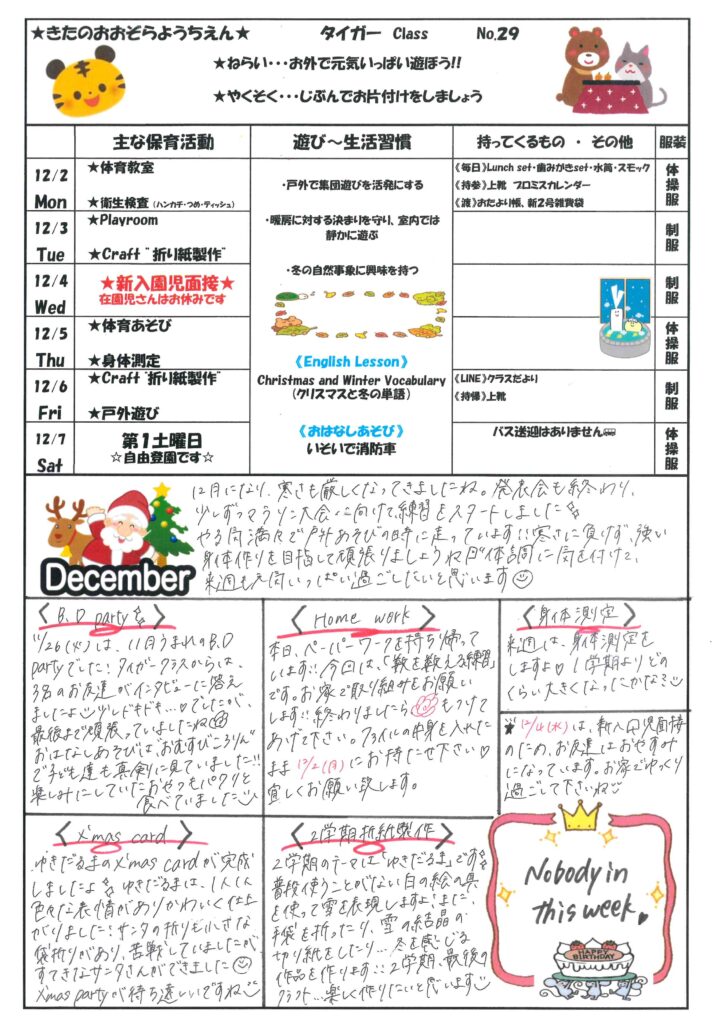 ★きたのおおぞらようちえん★ タイガー Class No.29
★ねらい・・・お外で元気いっぱい遊ぼう!!
★やくそく・・・じぶんでお片付けをしましょう
主な保育活動 遊び～生活習慣 持ってくるもの ・ その他 服装
12/2 Mon
★体育教室
★衛生検査 (ハンカチ・つめ・ティッシュ)
・戸外で集団遊びを活発にする
《毎日》Lunch set・歯みがきset・水筒・スモック
《持参》上靴 プロミスカレンダー
《渡》おたより帳、新2号雑貨袋
体操服
12/3 Tue
★Playroom
★Craft "折り紙製作"
・暖房に対する決まりを守り、室内では
静かに遊ぶ
制服
12/4 Wed
★新入園児面接★
在園児さんはお休みです
・冬の自然事象に興味を持つ
制服
12/5 Thu
★体育あそび
★身体測定
《English Lesson》
体操服
12/6 Fri
★Craft "折り紙製作"
★戸外遊び
Christmas and Winter Vocabulary
(クリスマスと冬の単語)
《LINE》クラスだより
《持帰》上靴
制服
12/7 Sat
第1土曜日
☆自由登園です☆
《おはなしあそび》
いそいで消防車
バス送迎はありません
体操服
December
12月になり、寒さも厳しくなってきましたね。発表会も終わり、
少しずつマラソン大会へ向けて練習をスタートしました
やる気満々で戸外あそびの時に走っています!!寒さに負けず、強い
身体作りを目指して頑張りましょうね 体調に気を付けて、
来週も元気いっぱい過ごしたいと思います
〈B.D party〉
11/26(火)は、11月うまれのB.D
partyでした!タイガークラスからは、
3名のお友達がインタビューに答え
ましたよ 少しドキドキ…でしたが、
最後まで頑張っていましたね
おはなしあそびは、"おむすびころりん"
で子ども達も真剣に見ていました!!
楽しみにしていたおやつもパクリと
食べていました
〈Home work〉
本日、ペーパーワークを持ち帰って
います!!今回は、「数を数える練習」
です。お家で取り組みをお願い
します!!終わりましたら もつけて
あげて下さい。ファイルの中身を入れた
まま12/2(月)にお持たせ下さい♡
宜しくお願い致します。
〈身体測定〉
来週は、身体測定を
しますよ♡1学期よりどの
くらい大きくなったかな?
★12/4(水)は、新入園児面接
のため、お友達はおやすみ
になっています。お家でゆっくり
過ごして下さいね
〈X'mas card〉
ゆきだるまのX'mas cardが完成
しましたよ ゆきだるまは、1人1人
色々な表情がありかわいく仕上
がりました!サンタの折りも小さな
袋折りがあり、苦戦していましたが
すてきなサンタさんができました
X'mas partyが待ち遠しいですね
〈2学期折紙製作〉
2学期のテーマは「ゆきだるま」です
普段使うことがない白の絵の具
を使って雪を表現しますよ!また、
手袋を折ったり、雪の結晶の
切り紙をしたり…冬を感じる
作品を作ります!!2学期、最後の
クラフト…楽しく作りたいと思います
Nobody in
this week.
HAPPY
BIRTHDAY